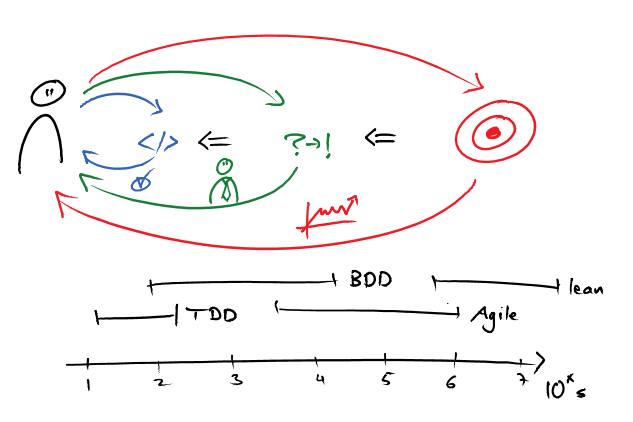 </> ⇐ ?→! ⇐
BDD
lean
TDD
Agile
1 2 3 4 5 6 7 10ˣ s